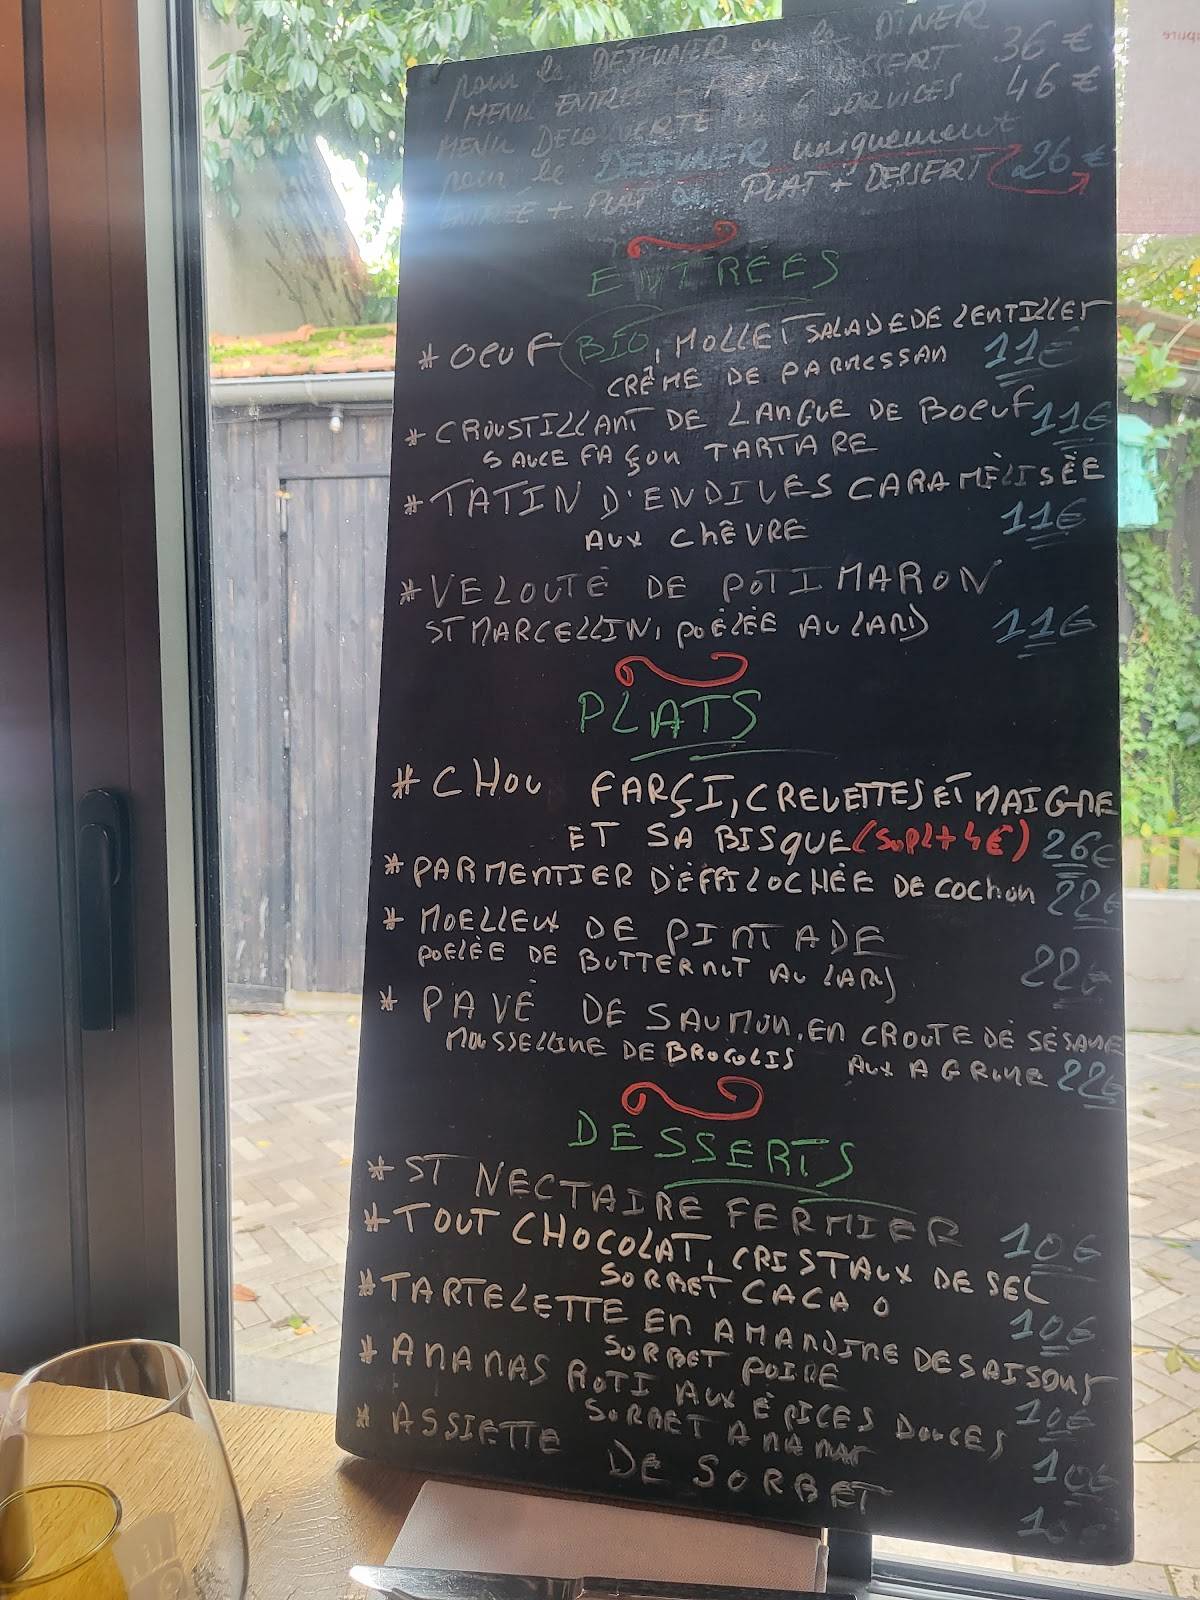 pour le DÉJEUNER ou le DÎNER
MENU ENTRÉE + PLAT + DESSERT 36€
MENU DECOUVERTE en 6 SERVICES 46€
pour le DEJEUNER uniquement
ENTRÉE + PLAT ou PLAT + DESSERT 26€
ENTRÉES
* OEUF BIO, MOLLET SALADE DE LENTILLES
CRÊME DE PARMESSAN 11€
* CROUSTILLANT DE LANGUE DE BOEUF 11€
SAUCE FAÇON TARTARE
* TATIN D'ENDIVES CARAMÈLISÈE
AUX CHÊVRE 11€
* VELOUTÉ DE POTIMARON
ST MARCELLIN, POÈLÈE AU LARD 11€
PLATS
* CHOU FARÇI, CREVETTES ET MAIGRE
ET SA BISQUE (SUPL+4€) 26€
* PARMENTIER D'ÈFFILOCHÉE DE COCHON 22€
* MOELLEUX DE PINTADE
POELÈE DE BUTTERNUT AU LARD 22€
* PAVÉ DE SAUMON, EN CROUTE DE SÉSAME
MOUSSELINE DE BROCOLIS AUX AGRUME 22€
DESSERTS
* ST NECTAIRE FERMIER 10€
* TOUT CHOCOLAT, CRISTAUX DE SEL
SORBET CACAO 10€
* TARTELETTE EN AMANDINE DE SAISONS
SORBET POIRE 10€
* ANANAS ROTI AUX ÉPICES DOUCES
SORBET ANANAS 10€
* ASSIETTE DE SORBET 10€